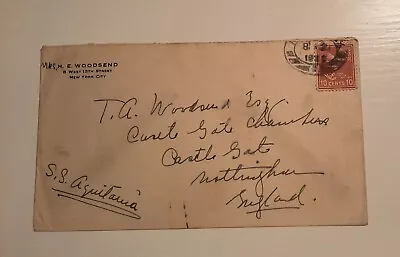 Mrs. H. E. WOODSEND
8 WEST 13TH STREET
NEW YORK CITY
10 CENTS 10
T. A. Woodsend Esq.
Castle Gate Chambers
Castle Gate
Nottingham
England.
S.S. Aquitania